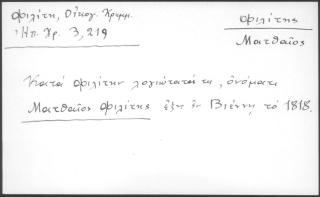 Φιλίτη, Οἰκογ. Χρημμ.
Ἠπ. Χρ. 3, 219
Φιλίτης
Ματθαῖος
Κατά Φιλίτην λογιώτατοί τε, ὀνόματι
Ματθαῖος Φιλίτης ἔζη ἐν Βιέννῃ τό 1818.